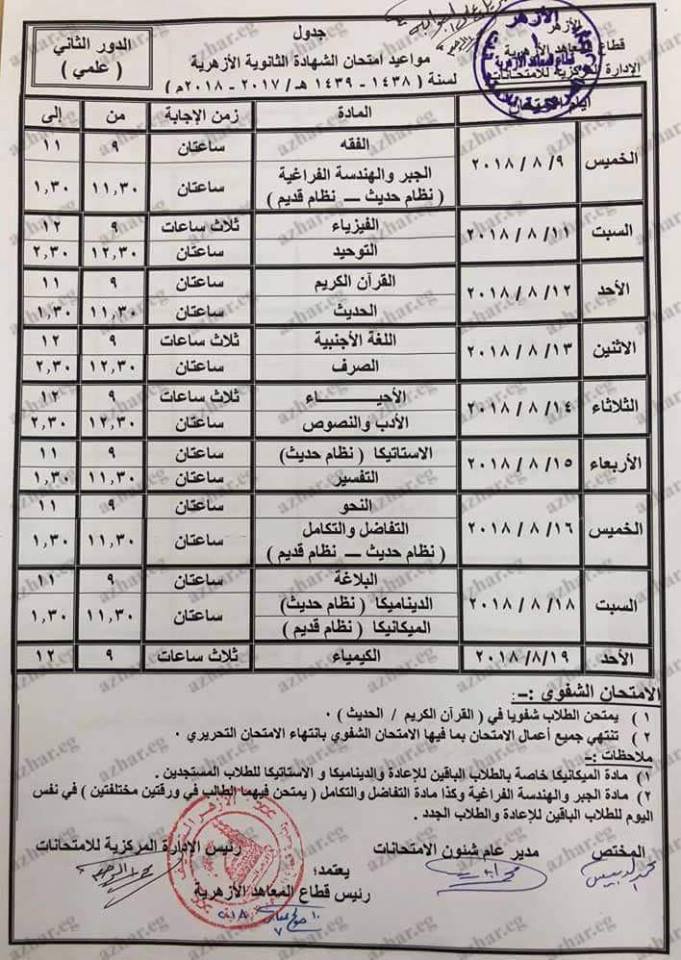 الأزهر
قطاع المعاهد الأزهرية
الإدارة المركزية للامتحانات
جدول
مواعيد امتحان الشهادة الثانوية الأزهرية
لسنة ( ١٤٣٨ - ١٤٣٩ هـ / ٢٠١٧ - ٢٠١٨م )
الدور الثاني
( علمي )
أيام المادة زمن الإجابة من إلى
الخميس ٢٠١٨ / ٨ / ٩ الفقه ساعتان ٩ ١١
الجبر والهندسة الفراغية ( نظام حديث – نظام قديم ) ساعتان ١١,٣٠ ١,٣٠
السبت ٢٠١٨ / ٨ / ١١ الفيزياء ثلاث ساعات ٩ ١٢
التوحيد ساعتان ١٢,٣٠ ٢,٣٠
الأحد ٢٠١٨ / ٨ / ١٢ القرآن الكريم ساعتان ٩ ١١
الحديث ساعتان ١١,٣٠ ١,٣٠
الاثنين ٢٠١٨ / ٨ / ١٣ اللغة الأجنبية ثلاث ساعات ٩ ١٢
الصرف ساعتان ١٢,٣٠ ٢,٣٠
الثلاثاء ٢٠١٨ / ٨ / ١٤ الأحيـــــــاء ثلاث ساعات ٩ ١٢
الأدب والنصوص ساعتان ١٢,٣٠ ٢,٣٠
الأربعاء ٢٠١٨ / ٨ / ١٥ الاستاتيكا ( نظام حديث) ساعتان ٩ ١١
التفسير ساعتان ١١,٣٠ ١,٣٠
الخميس ٢٠١٨ / ٨ / ١٦ النحو ساعتان ٩ ١١
التفاضل والتكامل ( نظام حديث – نظام قديم ) ساعتان ١١,٣٠ ١,٣٠
السبت ٢٠١٨ / ٨ / ١٨ البلاغة ساعتان ٩ ١١
الديناميكا ( نظام حديث) ساعتان ١١,٣٠ ١,٣٠
الميكانيكا ( نظام قديم )
الأحد ٢٠١٨/٨/١٩ الكيمياء ثلاث ساعات ٩ ١٢
الامتحان الشفوي :-
١ ) يمتحن الطلاب شفويا في ( القرآن الكريم / الحديث ) ٠
٢ ) تنتهي جميع أعمال الامتحان بما فيها الامتحان الشفوي بانتهاء الامتحان التحريري ٠
ملاحظات :-
١) مادة الميكانيكا خاصة بالطلاب الباقين للإعادة والديناميكا و الاستاتيكا للطلاب المستجدين .
٢) مادة الجبر والهندسة الفراغية وكذا مادة التفاضل والتكامل ( يمتحن فيهما الطالب في ورقتين مختلفتين ) في نفس
اليوم للطلاب الباقين للإعادة والطلاب الجدد .
المختص
مدير عام شئون الامتحانات
رئيس الإدارة المركزية للامتحانات
يعتمد؛
رئيس قطاع المعاهد الأزهرية
azhar.eg